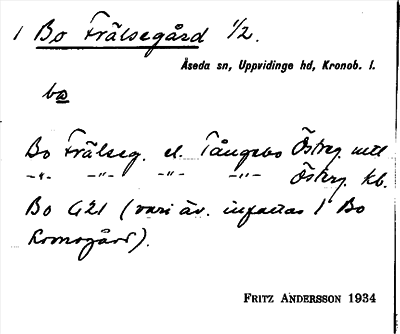 1 Bo Frälsegård 1/2.
Åseda sn, Uppvidinge hd, Kronob. l.
bo
Bo Frälseg. el. Tångebo Österg. mtl
-"- -"- -"- -"- Österg. kb.
Bo G21 (vari äv. infattas 1 Bo
Kronogård).
FRITZ ANDERSSON 1934